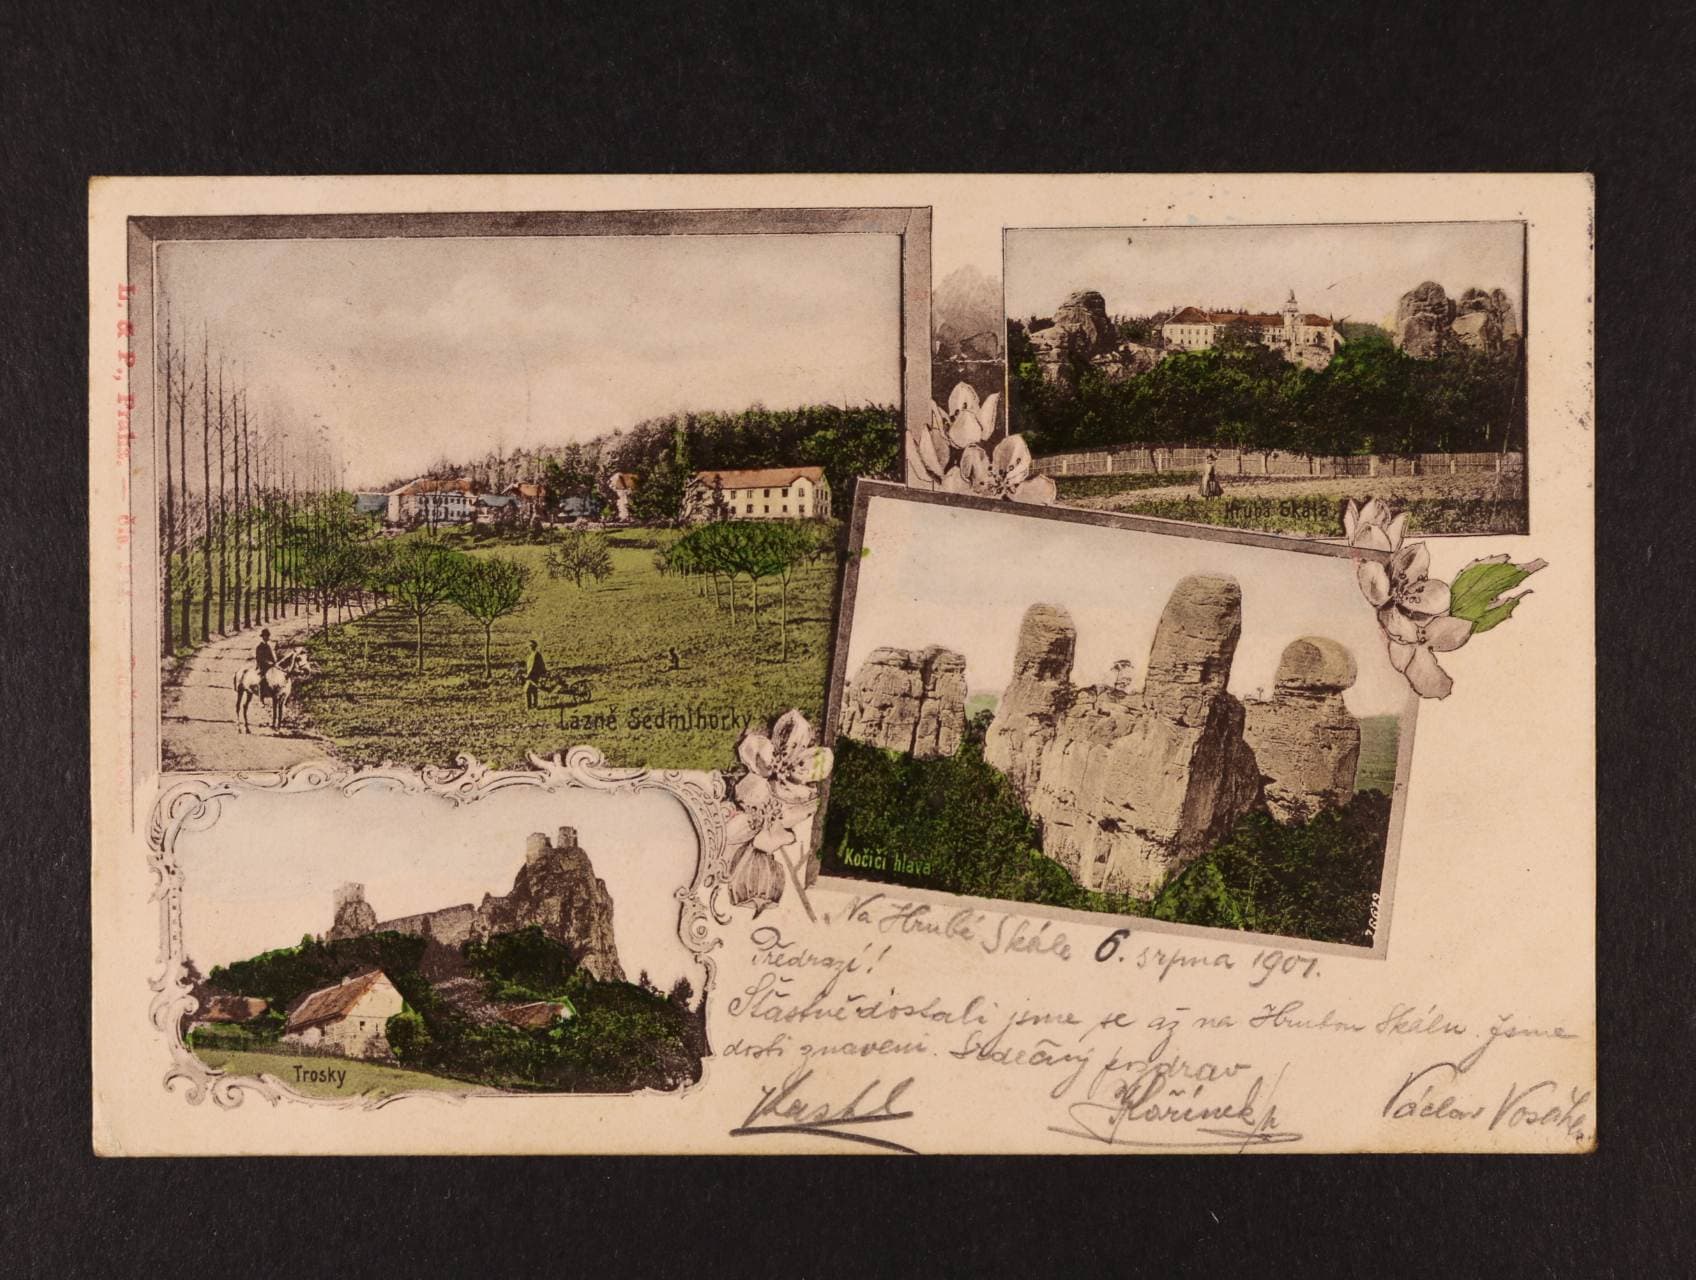 L. & P., Praha.
Lázně Sedmihorky
Hrubá Skála
Kočičí hlava
Trosky
Na Hrubé Skále 6. srpna 1901.
Předrazí!
Šťastně dostali jsme se až na Hrubou Skálu. Jsme
dosti znaveni. Srdečný pozdrav
Kořínek
Václav